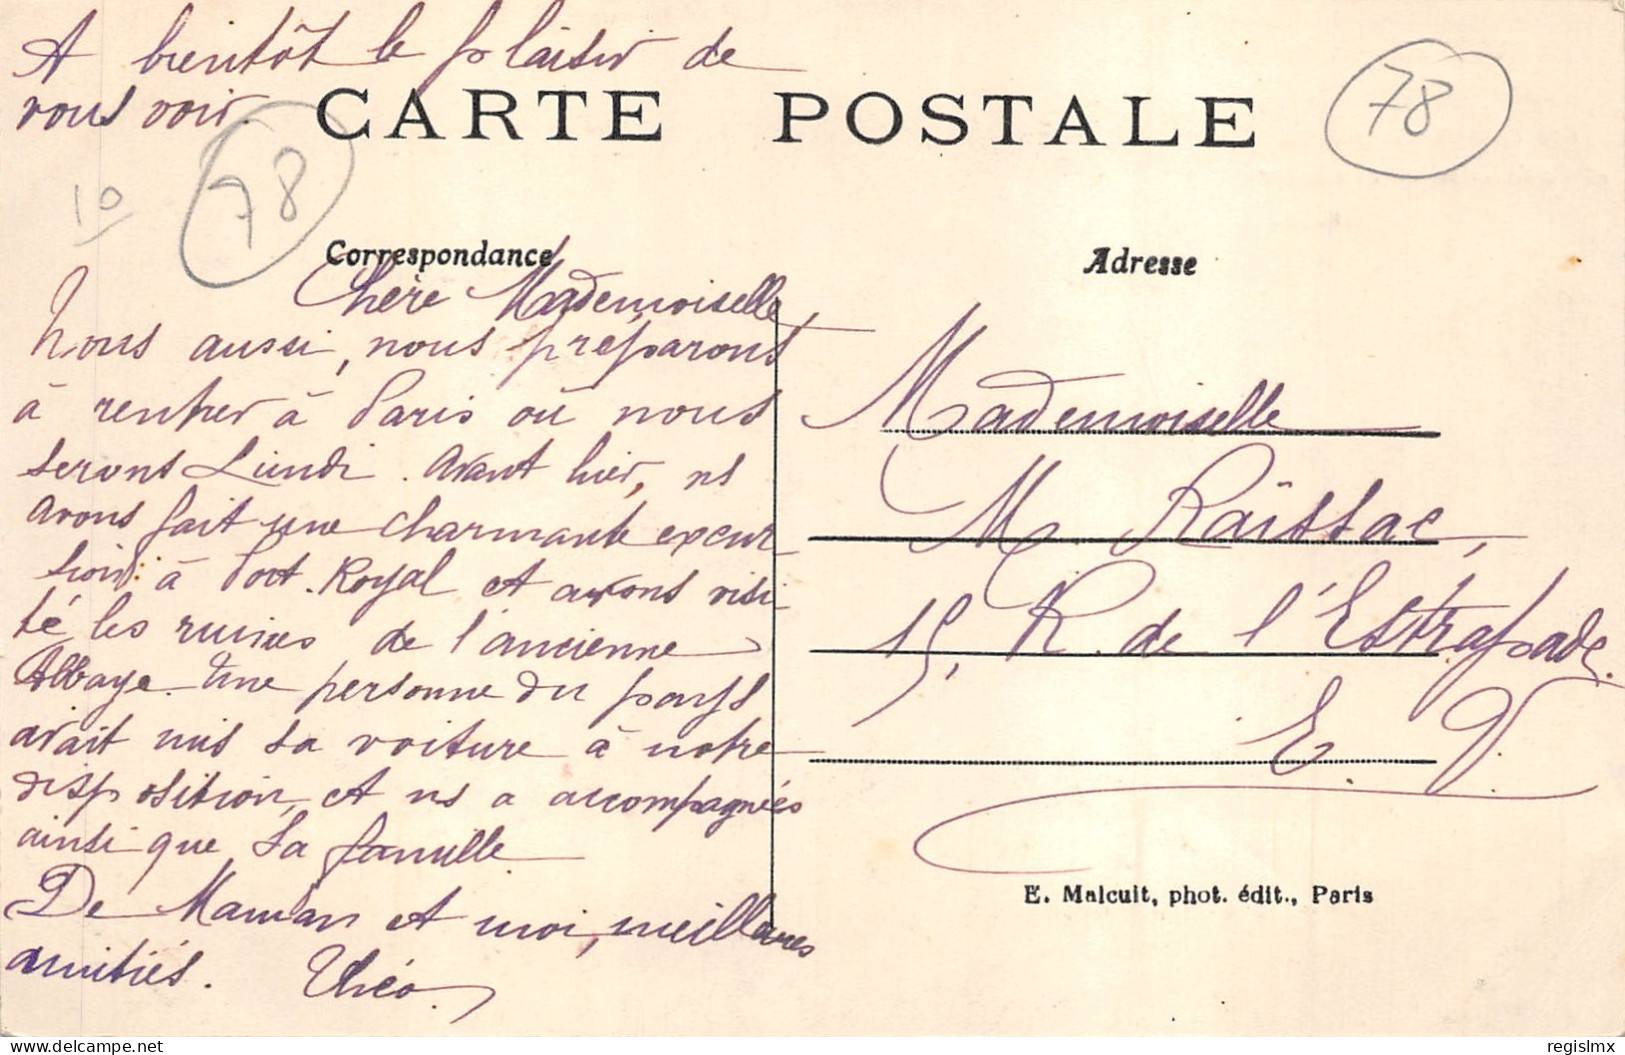 A bientôt le plaisir de
vous voir.
CARTE POSTALE
78
78
10
Correspondance
Adresse
Chère Mademoiselle,
Nous aussi, nous préparons
à rentrer à Paris où nous
serons Lundi. Avant hier, ns
avons fait une charmante excur
sion à Port-Royal et avons visi
té les ruines de l'ancienne
Abbaye. Une personne du pays
avait mis sa voiture à notre
disposition, et ns a accompagnées
ainsi que sa famille.
De Maman et moi, meilleures
amitiés. Théo.
Mademoiselle
M. Raïssac,
15, R. de l'Estrapade.
E. V.
E. Malcuit, phot. édit., Paris
delcampe.net
regislmx